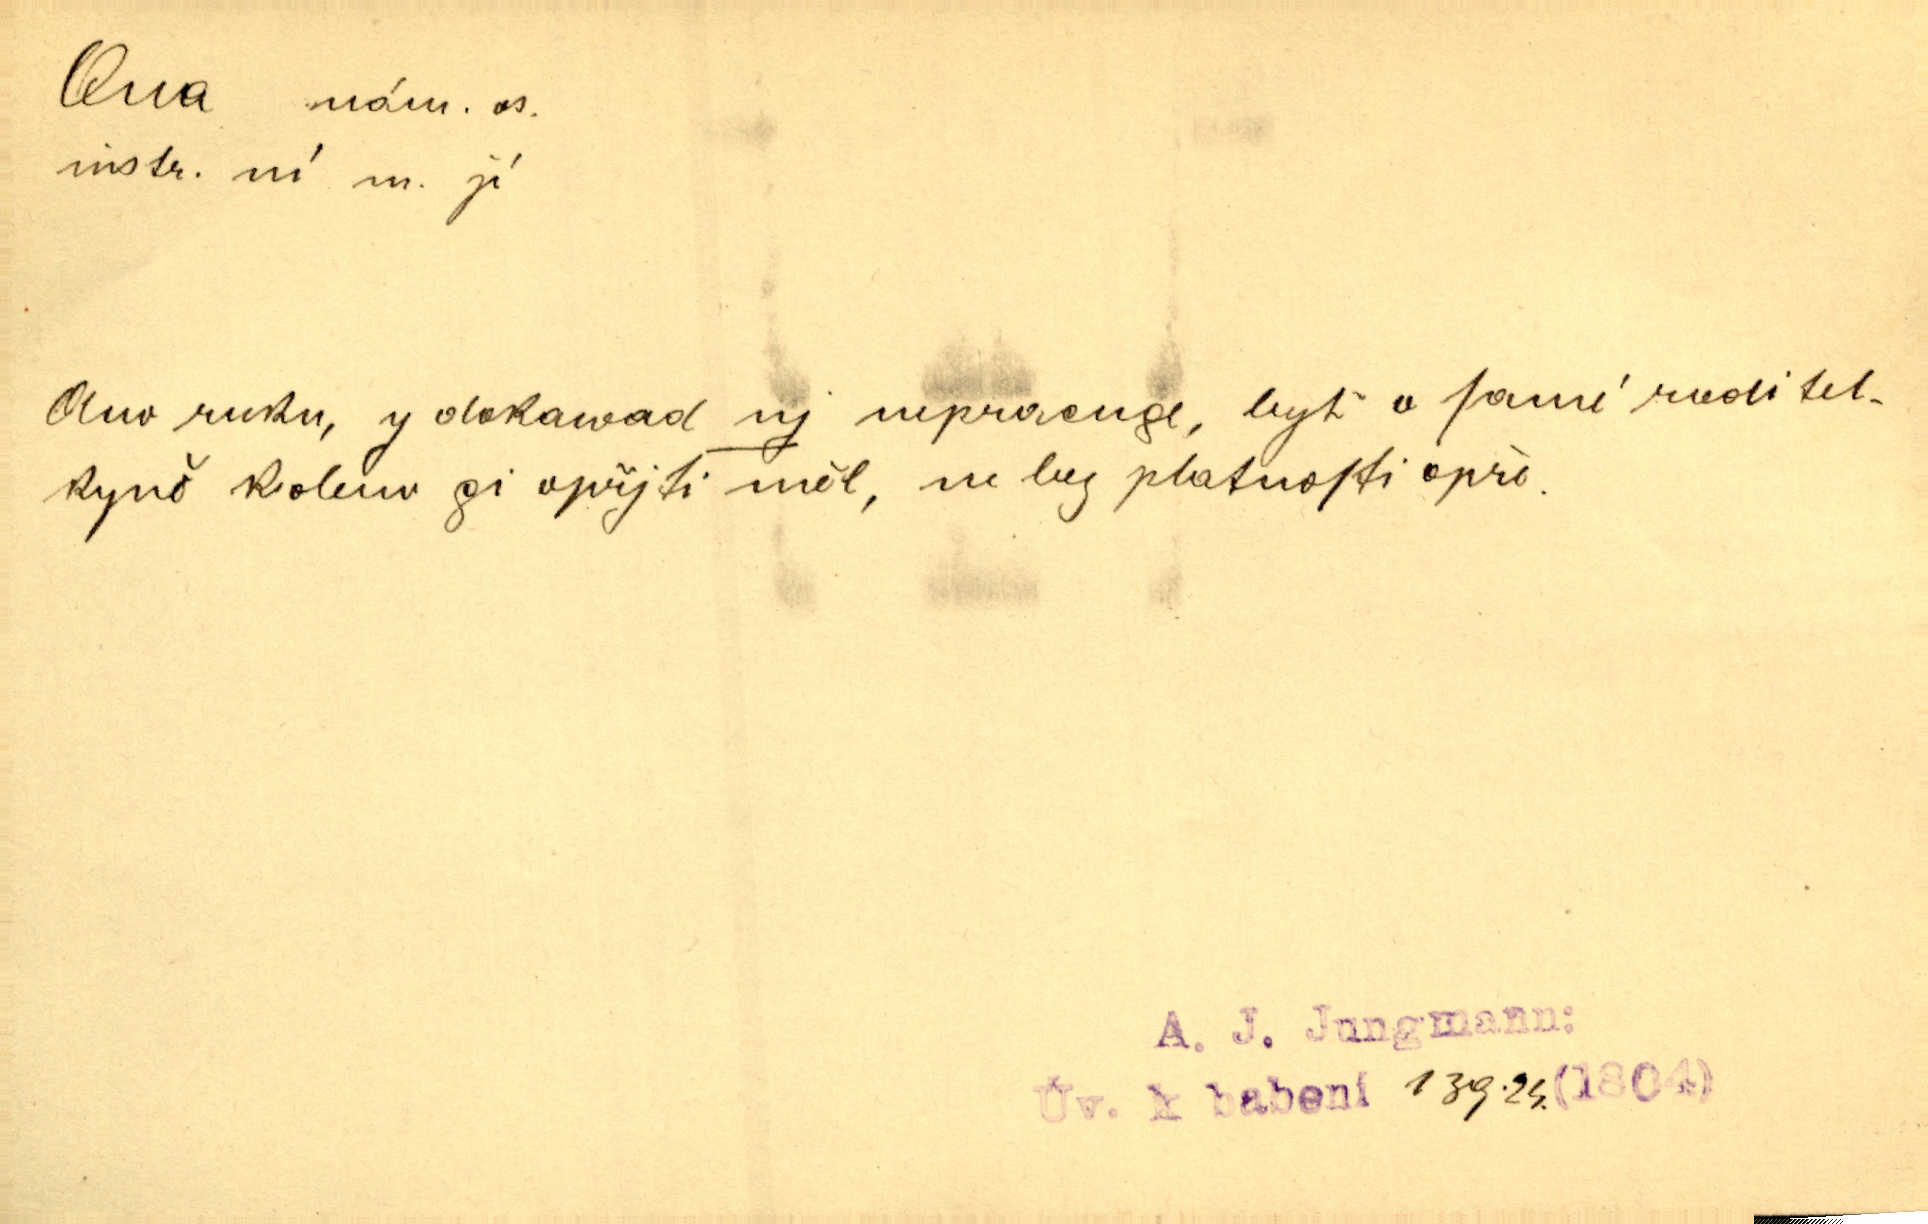 Ona nám. os.
instr. ní m. jí
Onu ruku, y dokawad nj nepracuge, byť o ſamé roditel-
kyně koleno gi opřjti měl, ne bez platnoſti opře.
A. J. Jungmann:
Úv. k babení 139.24. (1804)